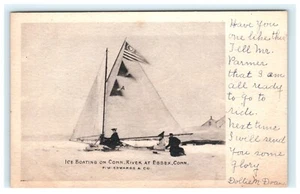 Have you
one like this
Tell Mr.
Parmer
that I am
all ready
to go to
ride.
Next time
I will send
you some
glory
ICE BOATING ON CONN. RIVER AT ESSEX, CONN.